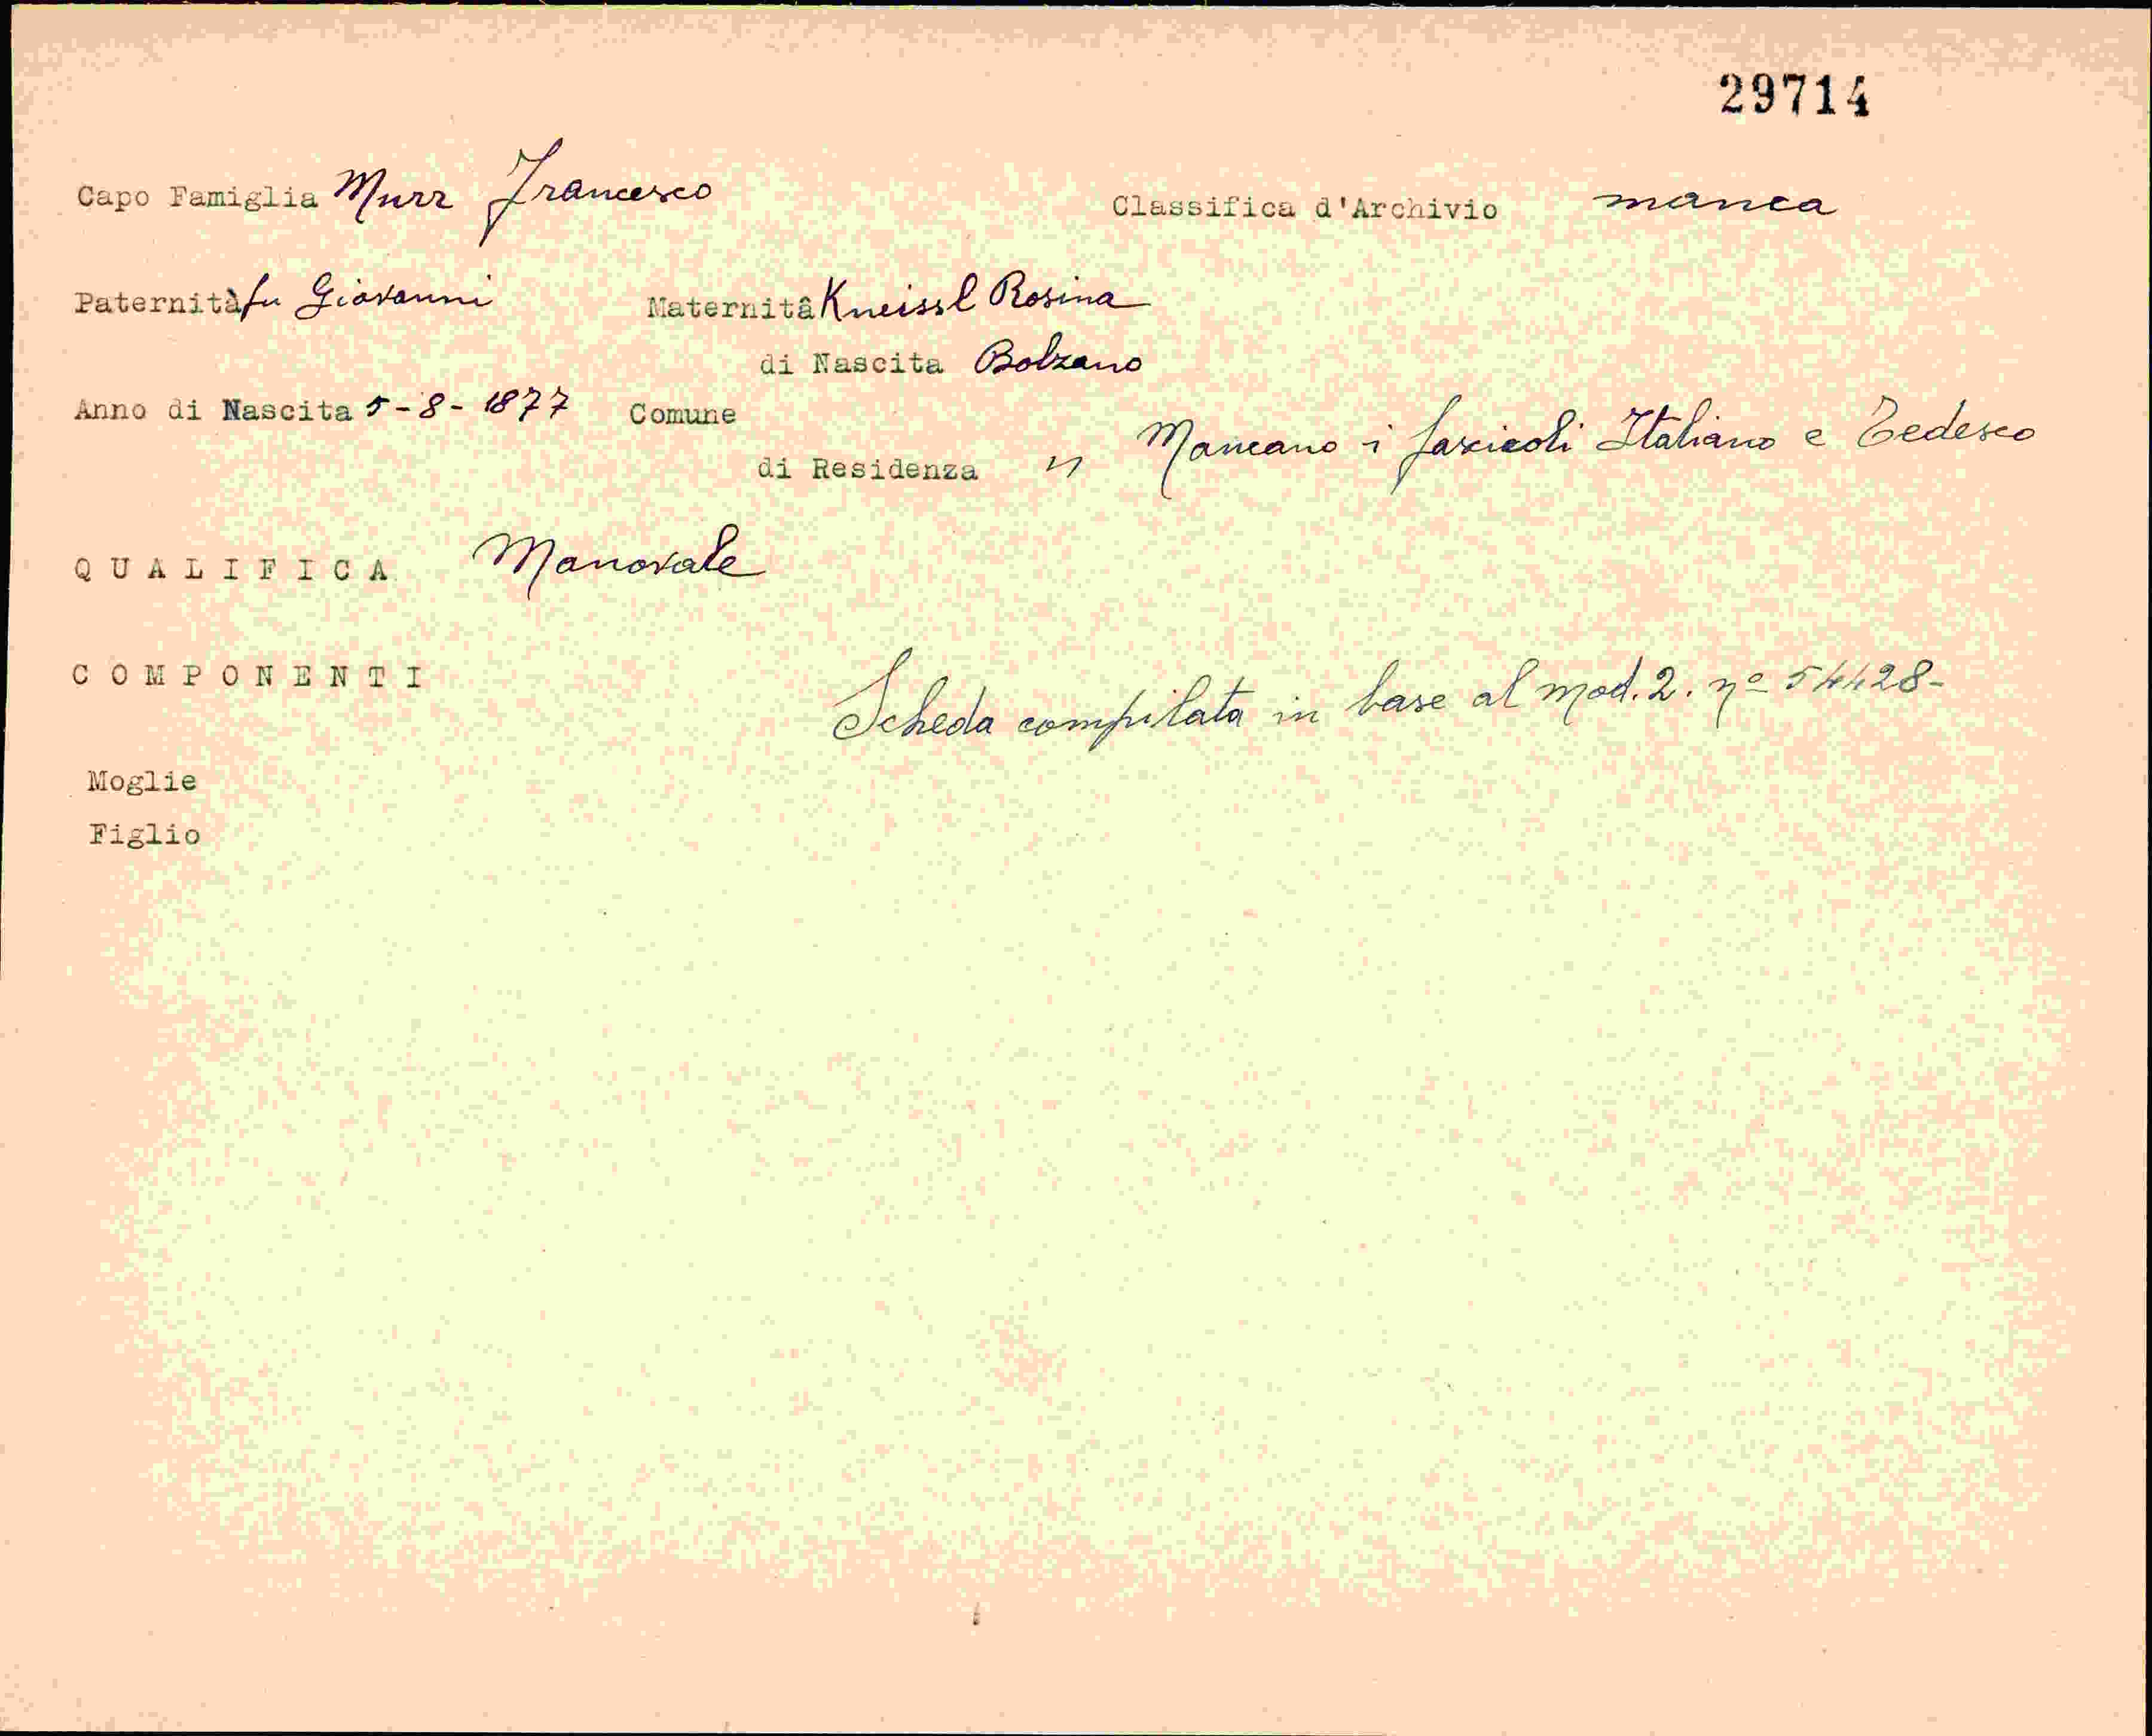 29714
Capo Famiglia Murr Francesco Classifica d'Archivio manca
Paternità fu Giovanni Maternitâ Kneissl Rosina
di Nascita Bolzano
Anno di Nascita 5-8-1877 Comune
di Residenza " Mancano i fascicoli Italiano e Tedesco
QUALIFICA Manovale
COMPONENTI
Scheda compilata in base al mod. 2. nº 54428-
Moglie
Figlio